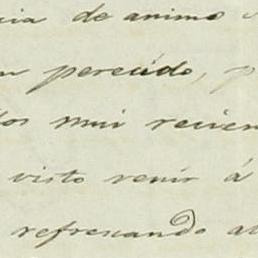 cia de animo
perecido, p
los mui recien
visto venir á
refrenando al